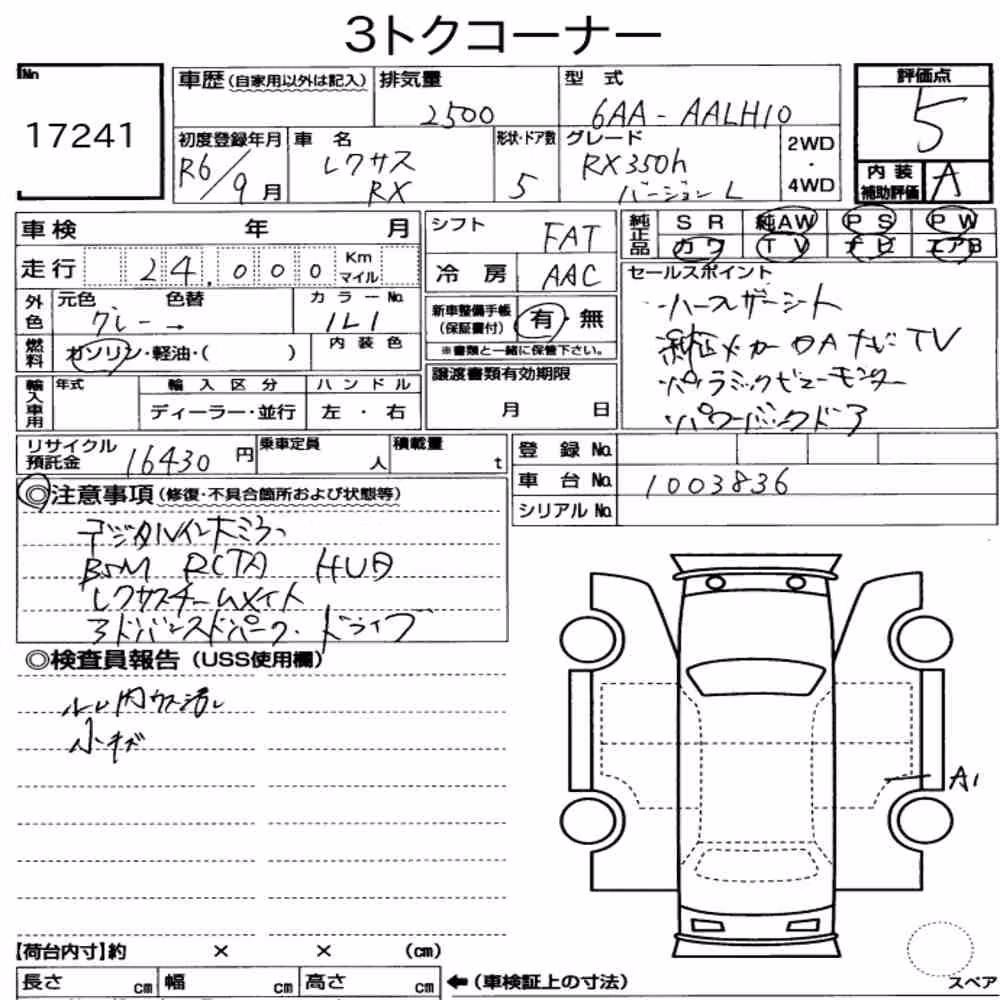 3トクコーナー
No
17241
車歴(自家用以外は記入)
排気量
2500
型 式
6AA-AALH10
評価点
5
初度登録年月
R6/9月
車 名
レクサス
RX
形状・ドア数
5
グレード
RX350h
バージョンL
2WD
・
4WD
内 装
補助評価
A
車検 年 月
走行 24,000 Km
マイル
シフト
FAT
冷 房
AAC
純正品
S R 純AW P S P W
カワ T V ナビ エアB
外色
元色 色替
グレー→
カラーNo.
1L1
新車整備手帳
(保証書付)
有・無
※書類と一緒に保管下さい。
燃料
ガソリン・軽油・( )
内 装 色
セールスポイント
ハーフレザーシート
純正メーカーOAナビTV
パノラミックビューモニター
パワーバックドア
輸入車用
年式
輸 入 区 分
ディーラー・並行
ハ ン ド ル
左 ・ 右
譲渡書類有効期限
月 日
リサイクル
預託金
16430円
乗車定員
人
積載量
t
登 録 No.
車 台 No.
1003836
シリアル No.
◎注意事項(修復・不具合箇所および状態等)
デジタルインナーミラー
BSM RCTA HUD
レクサスチームメイト
アドバンスドパーク・ドライブ
◎検査員報告(USS使用欄)
ルーム内ウス汚し
小キズ
A1
【荷台内寸】約 × × (cm)
長さ cm 幅 cm 高さ cm
←(車検証上の寸法)
スペア